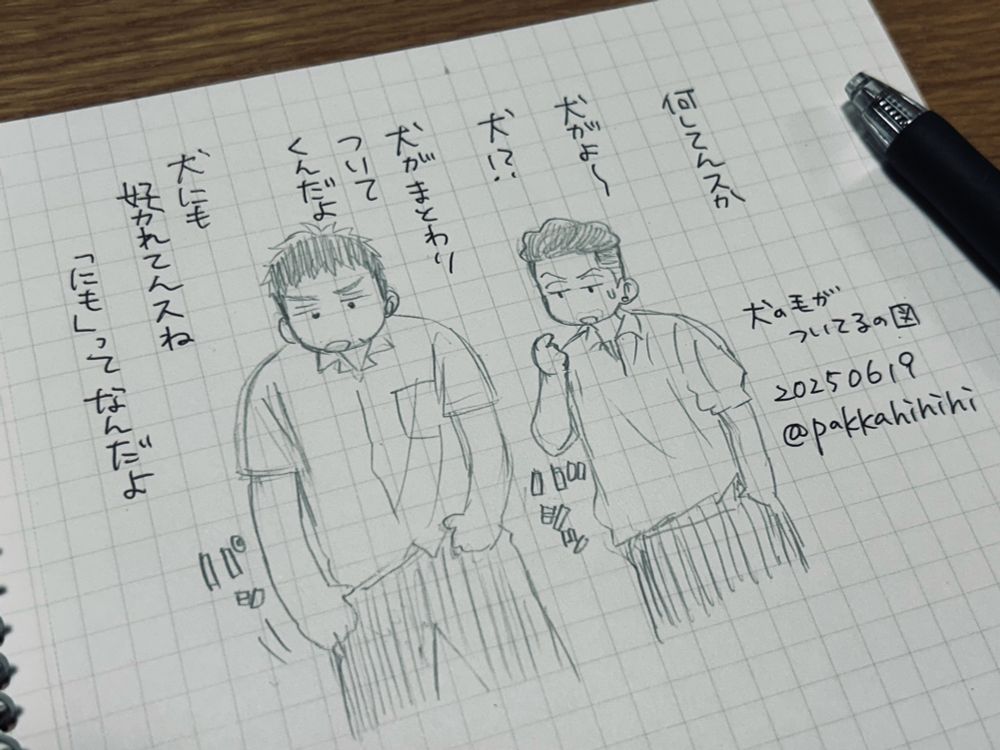 何してんスか
犬がよ〜
犬!?
犬がまとわり
ついて
くんだよ
犬にも
好かれてんスね
「にも」って なんだよ
犬の毛が
ついてるの図
20250619
@pakkahihihi